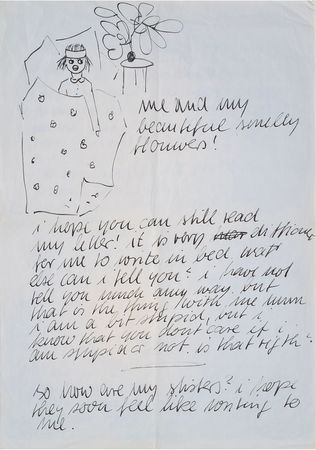 me and my
beautiful smelly
flouwers!
i hope you can still read
my letter! it is very
for me to write in bed. wat
else can i tell you? i have not
tell you much any way. but
that is the thing with me mum
i am a bit stupid, but i
know that you dont care if i
am stupid or not. is that rigth?
so how are my sisters? i hope
they soon feel like writing to
me.